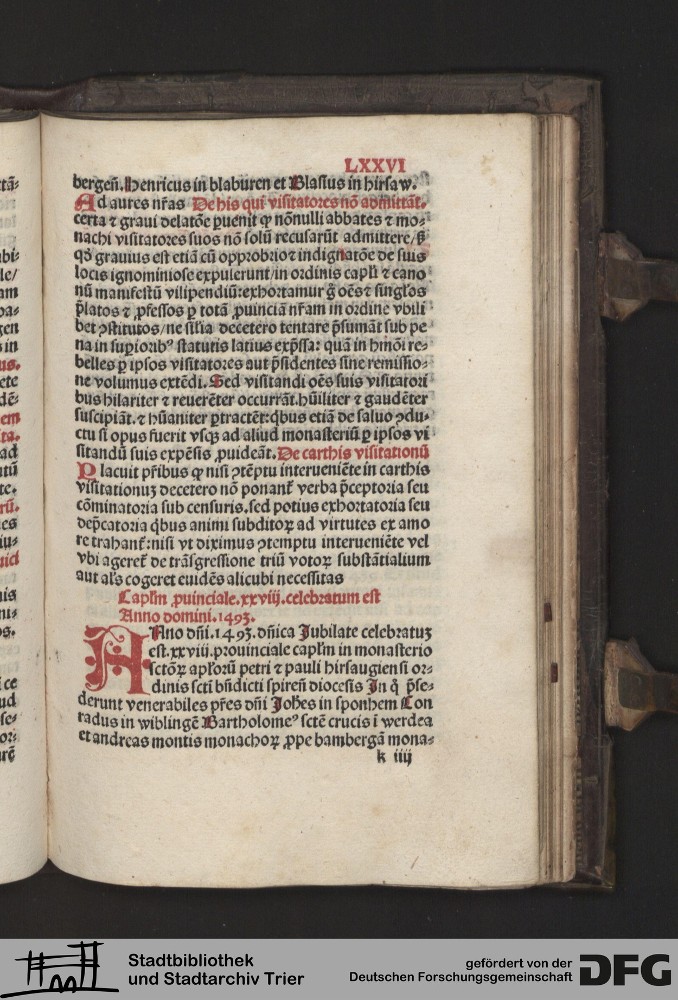 LXXVI
bergen̄. Henricus in blaburen et Blasius in hirsaw.
Ad aures nr̄as De his qui visitatores nō admittāt.
certa ⁊ graui delatōe ꝑuenit ꝙ nōnulli abbates ⁊ mo⸗
nachi visitatores suos nō solū recusarūt admittere/ß
qd̄ grauius est etiā cū opprobrio ⁊ indignatōe de suis
locis ignominiose expulerunt/in ordinis capl̄i ⁊ cano
nū manifestū vilipendiū:exhortamur ḡ oēs ⁊ singl̄os
p̄latos ⁊ ꝓfessos ꝑ totā ꝓuinciā nr̄am in ordine vbili
bet ꝯstitutos/ne sil̄ia decetero tentare p̄sumāt sub pe
na in suꝑioribꝰ statutis latius exp̄ssa: quā in hmōi re⸗
belles ꝑ ipsos visitatores aut p̄sidentes sine remissio⸗
ne volumus extēdi. Sed visitandi oēs suis visitatori
bus hilariter ⁊ reuerēter occurrāt. hūiliter ⁊ gaudēter
suscipiāt. ⁊ hūaniter ꝑtractēt: qͥbus etiā de saluo ꝯdu⸗
ctu si opus fuerit vsqꝫ ad aliud monasteriū ꝑ ipsos vi
sitandū suis expēsis ꝓuideāt. De carthis visitationū
Placuit pr̄ibus ꝙ nisi ꝯtēptu interueniēte in carthis
visitationuꝫ decetero nō ponant᷑ verba p̄ceptoria seu
cōminatoria sub censuris. sed potius exhortatoria seu
dep̄catoria qͥbus animi subditoꝝ ad virtutes ex amo
re trahant᷑: nisi vt diximus ꝯtemptu interueniēte vel
vbi ageret᷑ de trāsgressione triū votoꝝ substātialium
aut al̄s cogeret euidēs alicubi necessitas
Capl̄m ꝓuinciale. xxviij. celebratum est
Anno domini. 1493.
ANno dn̄i. 1493. dn̄ica Jubilate celebratuꝫ
est. xxviij. prouinciale capl̄m in monasterio
sctōꝝ apl̄orū petri ⁊ pauli hirsaugiensi or⸗
dinis scti bn̄dicti spireñ diocesis In q̄ p̄se⸗
derunt venerabiles pr̄es dn̄i Joh̄es in sponhem Con
radus in wiblingē Bartholomeꝰ sctē crucis ī werdea
et andreas montis monachoꝝ ꝓpe bambergā mona⸗
k iiij
Stadtbibliothek
und Stadtarchiv Trier
gefördert von der
Deutschen Forschungsgemeinschaft
DFG